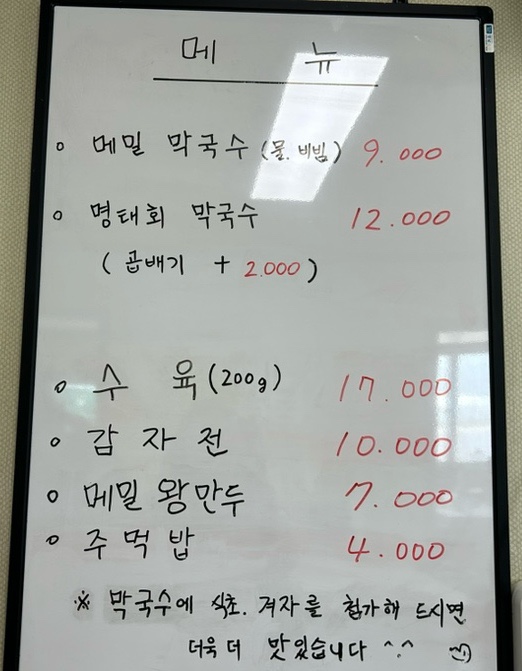 메 뉴
o 메밀 막국수 (물. 비빔) 9.000
o 명태회 막국수 12.000
( 곱배기 + 2.000 )
o 수 육 (200g) 17.000
o 감 자 전 10.000
o 메밀 왕만두 7.000
o 주 먹 밥 4.000
※ 막국수에 식초. 겨자를 첨가해 드시면
더욱 더 맛있습니다 ^.^